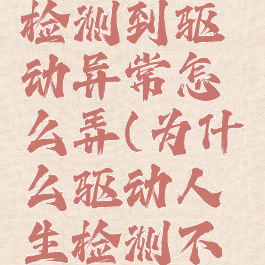 检测到驱
动异常怎
么弄(为什
么驱动人
生检测不